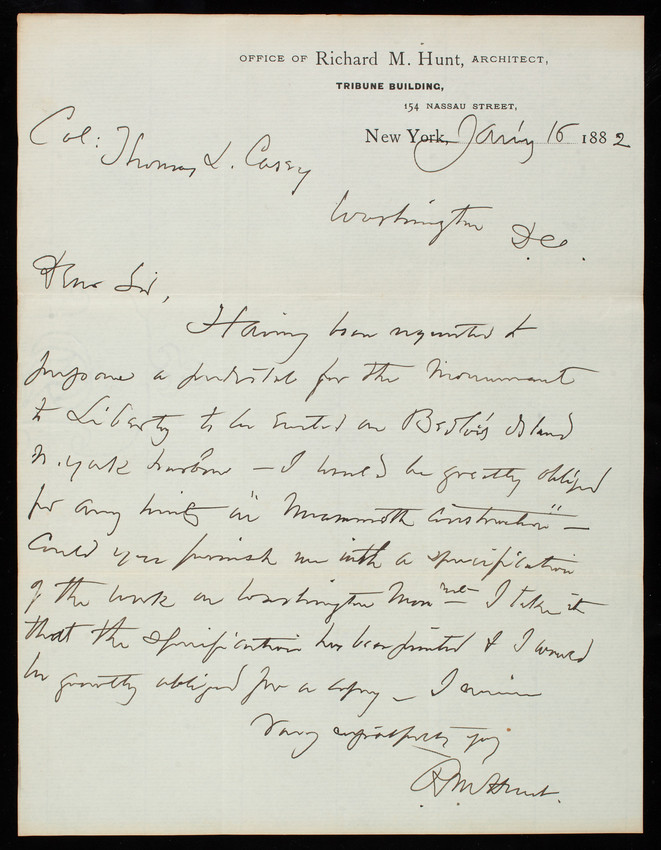 OFFICE OF Richard M. Hunt, ARCHITECT,
TRIBUNE BUILDING,
154 NASSAU STREET,
New York, Jan'y 16 1882
Col: Thomas L. Casey
Washington
D.C.
Dear Sir,
Having been requested to
a pedestal for the Monument
to Liberty to be erected on Bedloe's Island
N. York harbor — I would be greatly obliged
for any hints in "Mammoth Construction" —
Could you furnish me with a specification
of the work on Washington Monmet — I take it
that the specification has been printed & I would
be greatly obliged for a copy — I remain
Very respectfully yrs
R M Hunt.